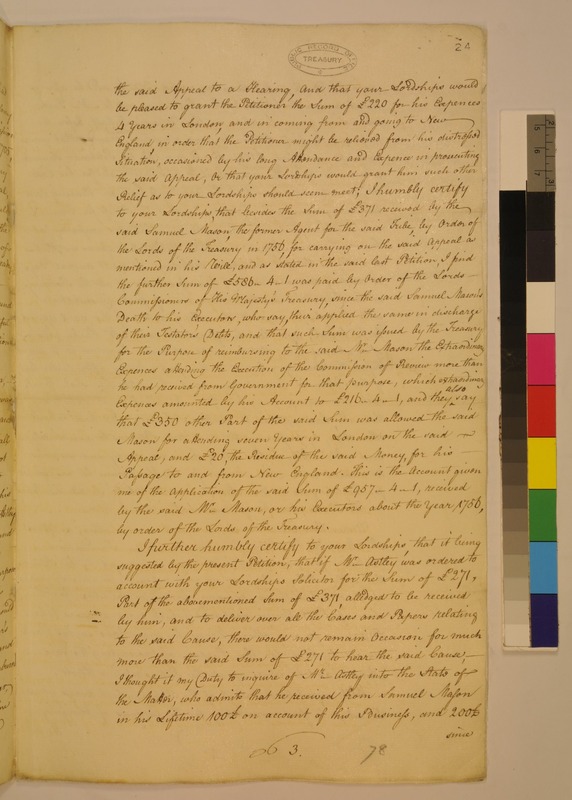 24
PUBLIC RECORD OFFICE
TREASURY
the said Appeal to a Hearing, and that your Lordships would
be pleased to grant the Petitioner the Sum of £220 for his Expences
4 Years in London, and in coming from and going to New
England, in order that the Petitioner might be relieved from his distressed
Situation, occasioned by his long Attendance and Expence in prosecuting
the said Appeal, Or that your Lordships would grant him such other
Relief as to your Lordships should seem meet; I humbly certify
to your Lordships, that besides the Sum of £371 received by the
said Samuel Mason, the former Agent for the said Tribe, by Order of
the Lords of the Treasury in 1756, for carrying on the said Appeal as
mentioned in his Will, and as stated in the said last Petition, I find
the further Sum of £586 - 4 - 1 was paid by Order of the Lords
Commissioners of His Majesty's Treasury, since the said Samuel Mason's
Death to his Executors, who say, their applied the same in discharge
of their Testators Debts, and that such Sum was issued by the Treasury
for the Purpose of reimbursing to the said Mr. Mason the Extraordinary
Expences attending the Execution of the Commission of Review more than
he had received from Government for that purpose, which extraordinary
Expences amounted by his Account to £216 - 4 - 1, and they also say
that £350 other Part of the said Sum was allowed the said
Mason for attending seven Years in London on the said
Appeal, and £20, the Residue of the said Money, for his
Passage to and from New England. This is the Account given
me of the Application of the said Sum of £957 - 4 - 1, received
by the said Mr. Mason, or his Executors about the Year 1756,
by order of the Lords of the Treasury.
I further humbly certify to your Lordships, that it being
suggested by the present Petition, that if Mr. Astley was ordered to
account with your Lordships Solicitor for the Sum of £271,
Part of the abovementioned Sum of £371 alledged to be received
by him, and to deliver over all the Cases and Papers relating
to the said Cause, there would not remain Occasion for much
more than the said Sum of £271 to hear the said Cause,
I thought it my Duty to inquire of Mr. Astley into the State of
the Matter, who admits that he received from Samuel Mason
in his Lifetime 100£ on account of this Business, and 200£
since
3.
78